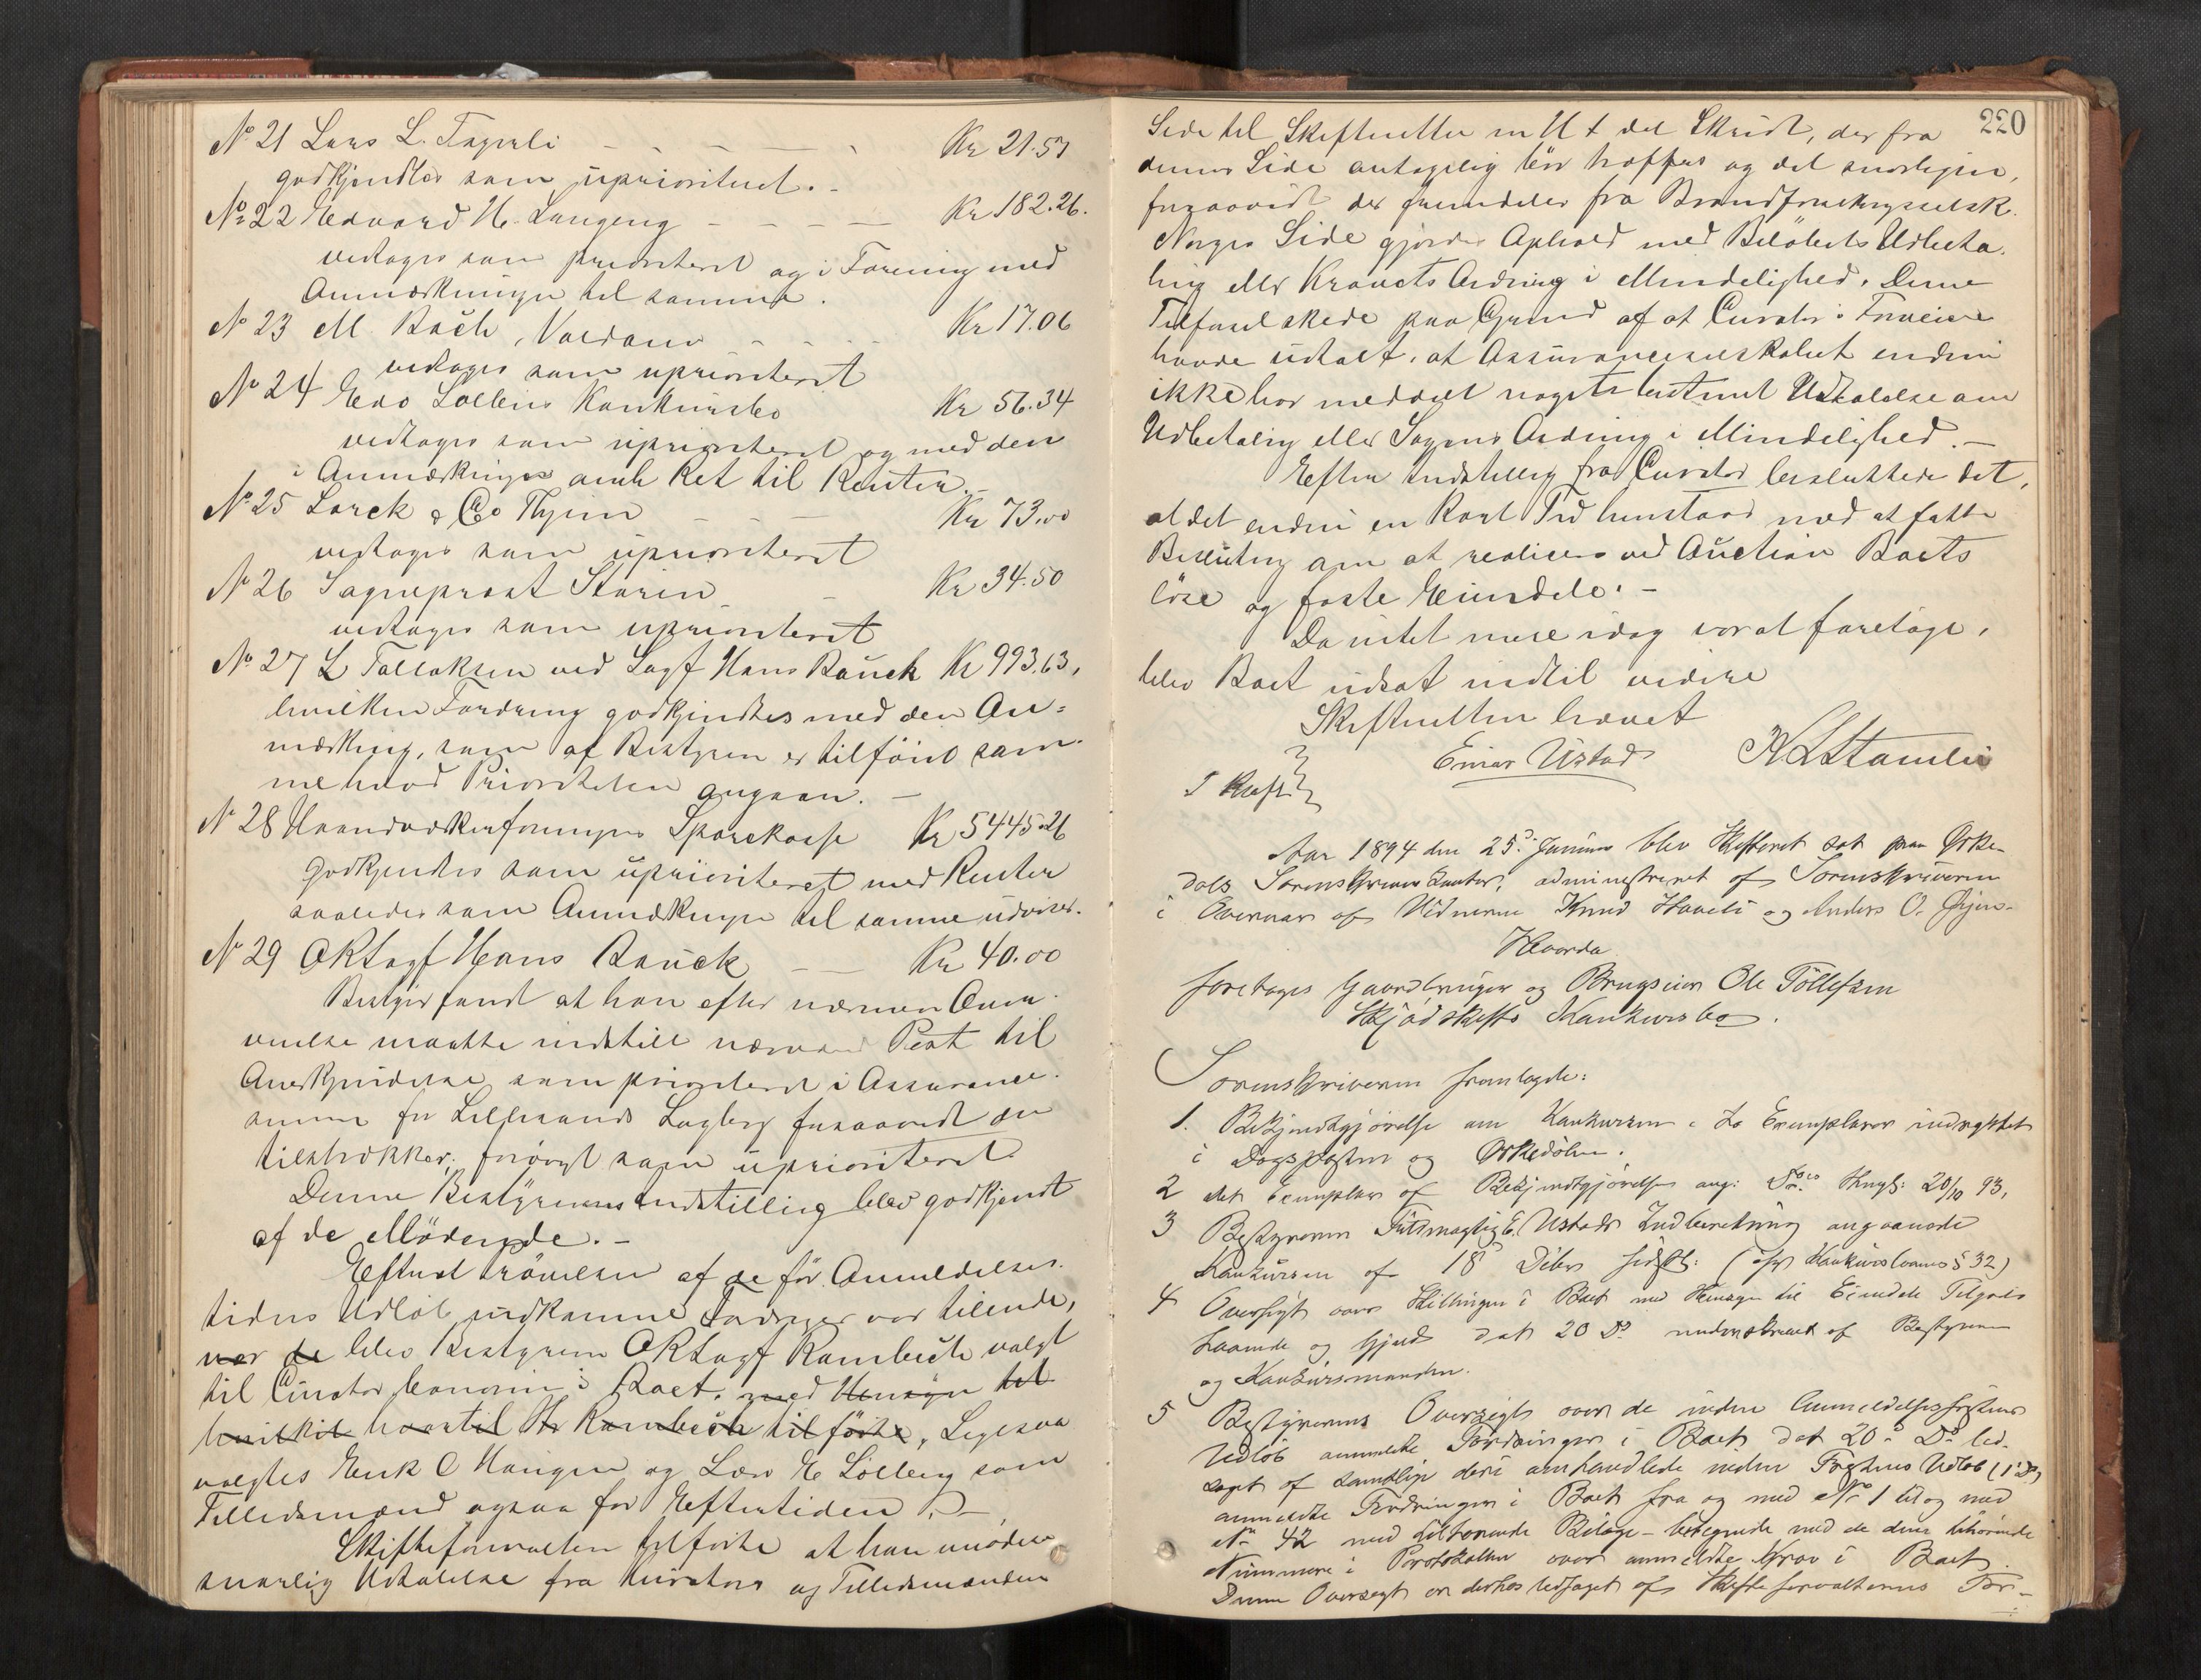 No 21 Lars L. Fagerli - - - - Kr 21.57
godkjendtes som uprioriteret. -
No 22 Edvard H. Langeng - - - - Kr 182.26.
vedtages som prioriteret og i Forening med
Anmærkningen til samme.
No 23 M. Bach, Valdans - - - - Kr 17.06
vedtages som uprioriteret
No 24 Edv Solbergs Konkursbo Kr 56.34
vedtages som uprioriteret og med den
i Anmærkningen Ret til Renter. -
No 25 Lorck & Co Thjem - - - Kr 73.00
vedtages som uprioriteret
No 26 Sogneprest Steren - - Kr 34.50
vedtages som uprioriteret
No 27 L Tollaksen ved Sagf Hans Bauck Kr 993.63,
hvilken Fordring godkjendtes med den An-
mærkning, som af Bestyren er tilføiet sam-
me hvad Prioriteten angaar. -
No 28 Haandværkerforeningens Sparekasse Kr 5445.26
godkjendtes som uprioriteret med Renter
saaledes som Anmærkningen til samme udviser.
No 29 ORsagf Hans Bauck - - Kr 40.00
Bestyrer fandt at han efter nærmere Over-
veielse maatte indstille nærværende Post til
Anerkjendelse som prioriteret i Assurance-
summen for Lillesands Sagbrug forsaavidt den
tilstrækker, forøvrigt som uprioriteret.
Denne Bestyrerens Indstilling blev godkjendt
af de Mødende. -
Efterat Prøvelsen af de før Anmeldelses-
tidens Udløb indkomne Fordringer var tilende,
var de blev Bestyreren ORsagf Rambech valgt
til Curator bonorum i Boet. med Hensyn til
hvilket hvortil Hr Rambech tilførte, Ligesaa
valgtes Erik O Haugen og Lars E Solberg som
Tillidsmænd ogsaa for Eftertiden. -
Skifteforvalteren tilførte at han imødeser
snarlig Udtalelse fra Kurators og Tillidsmændens
220
Side til Skifteretten m H t det Skridt, der fra
dennes Side antagelig bør træffes og det snarligen,
forsaavidt der fremdeles fra Brandforsikringsselsk.
Norges Side gjøres Ophold med Beløbets Udbeta-
ling eller Kravets Ordning i Mindelighed. Denne
Tilførsel skede paa Grund af at Curator i Forveien
havde udtalt, at Assuranceselskabet endnu
ikke har meddelt nogen bestemt Udtalelse om
Udbetaling eller Sagens Ordning i Mindelighed. -
Efter Indstilling fra Curator besluttedes det,
at det endnu en kort Tid henstaar med at fatte
Beslutning om at realisere ved Auction Boets
løse og faste Eiendele. -
Da intet mere idag var at foretage,
blev Boet udsat indtil videre
Skifteretten hævet
Einar Ustad KLStamli
T Kraft
Aar 1894 den 25de Januar blev Skifteret sat paa Orke-
dals Sorenskriverkontor, administreret af Sorenskriveren
i Overvær af Vidnerne Knud Hoveli og Anders O.
Hvorda
foretoges Gaardbruger og Brugseier Ole Tollefsen
Skjødskifts Konkursbo.
Sorenskriveren fremlagde:
1. Bekjendtgjørelse om Konkursen i to Exemplarer indrykket
i Dagsposten og Orkedølen.
2 det Exemplar af Bekjendtgjørelsen ang: Boets 20/10 93,
3 Bestyrerens Fuldmægtig E. Ustads Indberetning angaaende
Konkursen af 18de Dcbr sidstl: (cfr Konkurslovens § 32)
4 Oversigt over Stillingen i Boet med Hensyn til Eiendele Tilgode-
havende og Gjeld dat 20 Ds underskrevet af Bestyreren
og Konkursmanden.
5 Bestyrerens Oversigt over de inden Anmeldelsesfristens
Udløb anmeldte Fordringer i Boet dat 20de Ds led-
saget af samtlige deri omhandlede inden Fristens Udløb
anmeldte Fordringer i Boet fra og med No 1 til og med
No 42 med tilhørende Bilage - betegnede med de dem tilhørende
Nummere i Protokollen over anmeldte Krav i Boet.
Denne Oversigt er derhos ledsaget af Skifteforvalterens For-